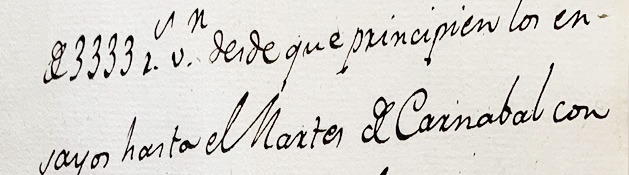 de 3333 r.ˢ v.ⁿ desde que principien los en-
sayos hasta el Martes de Carnabal con